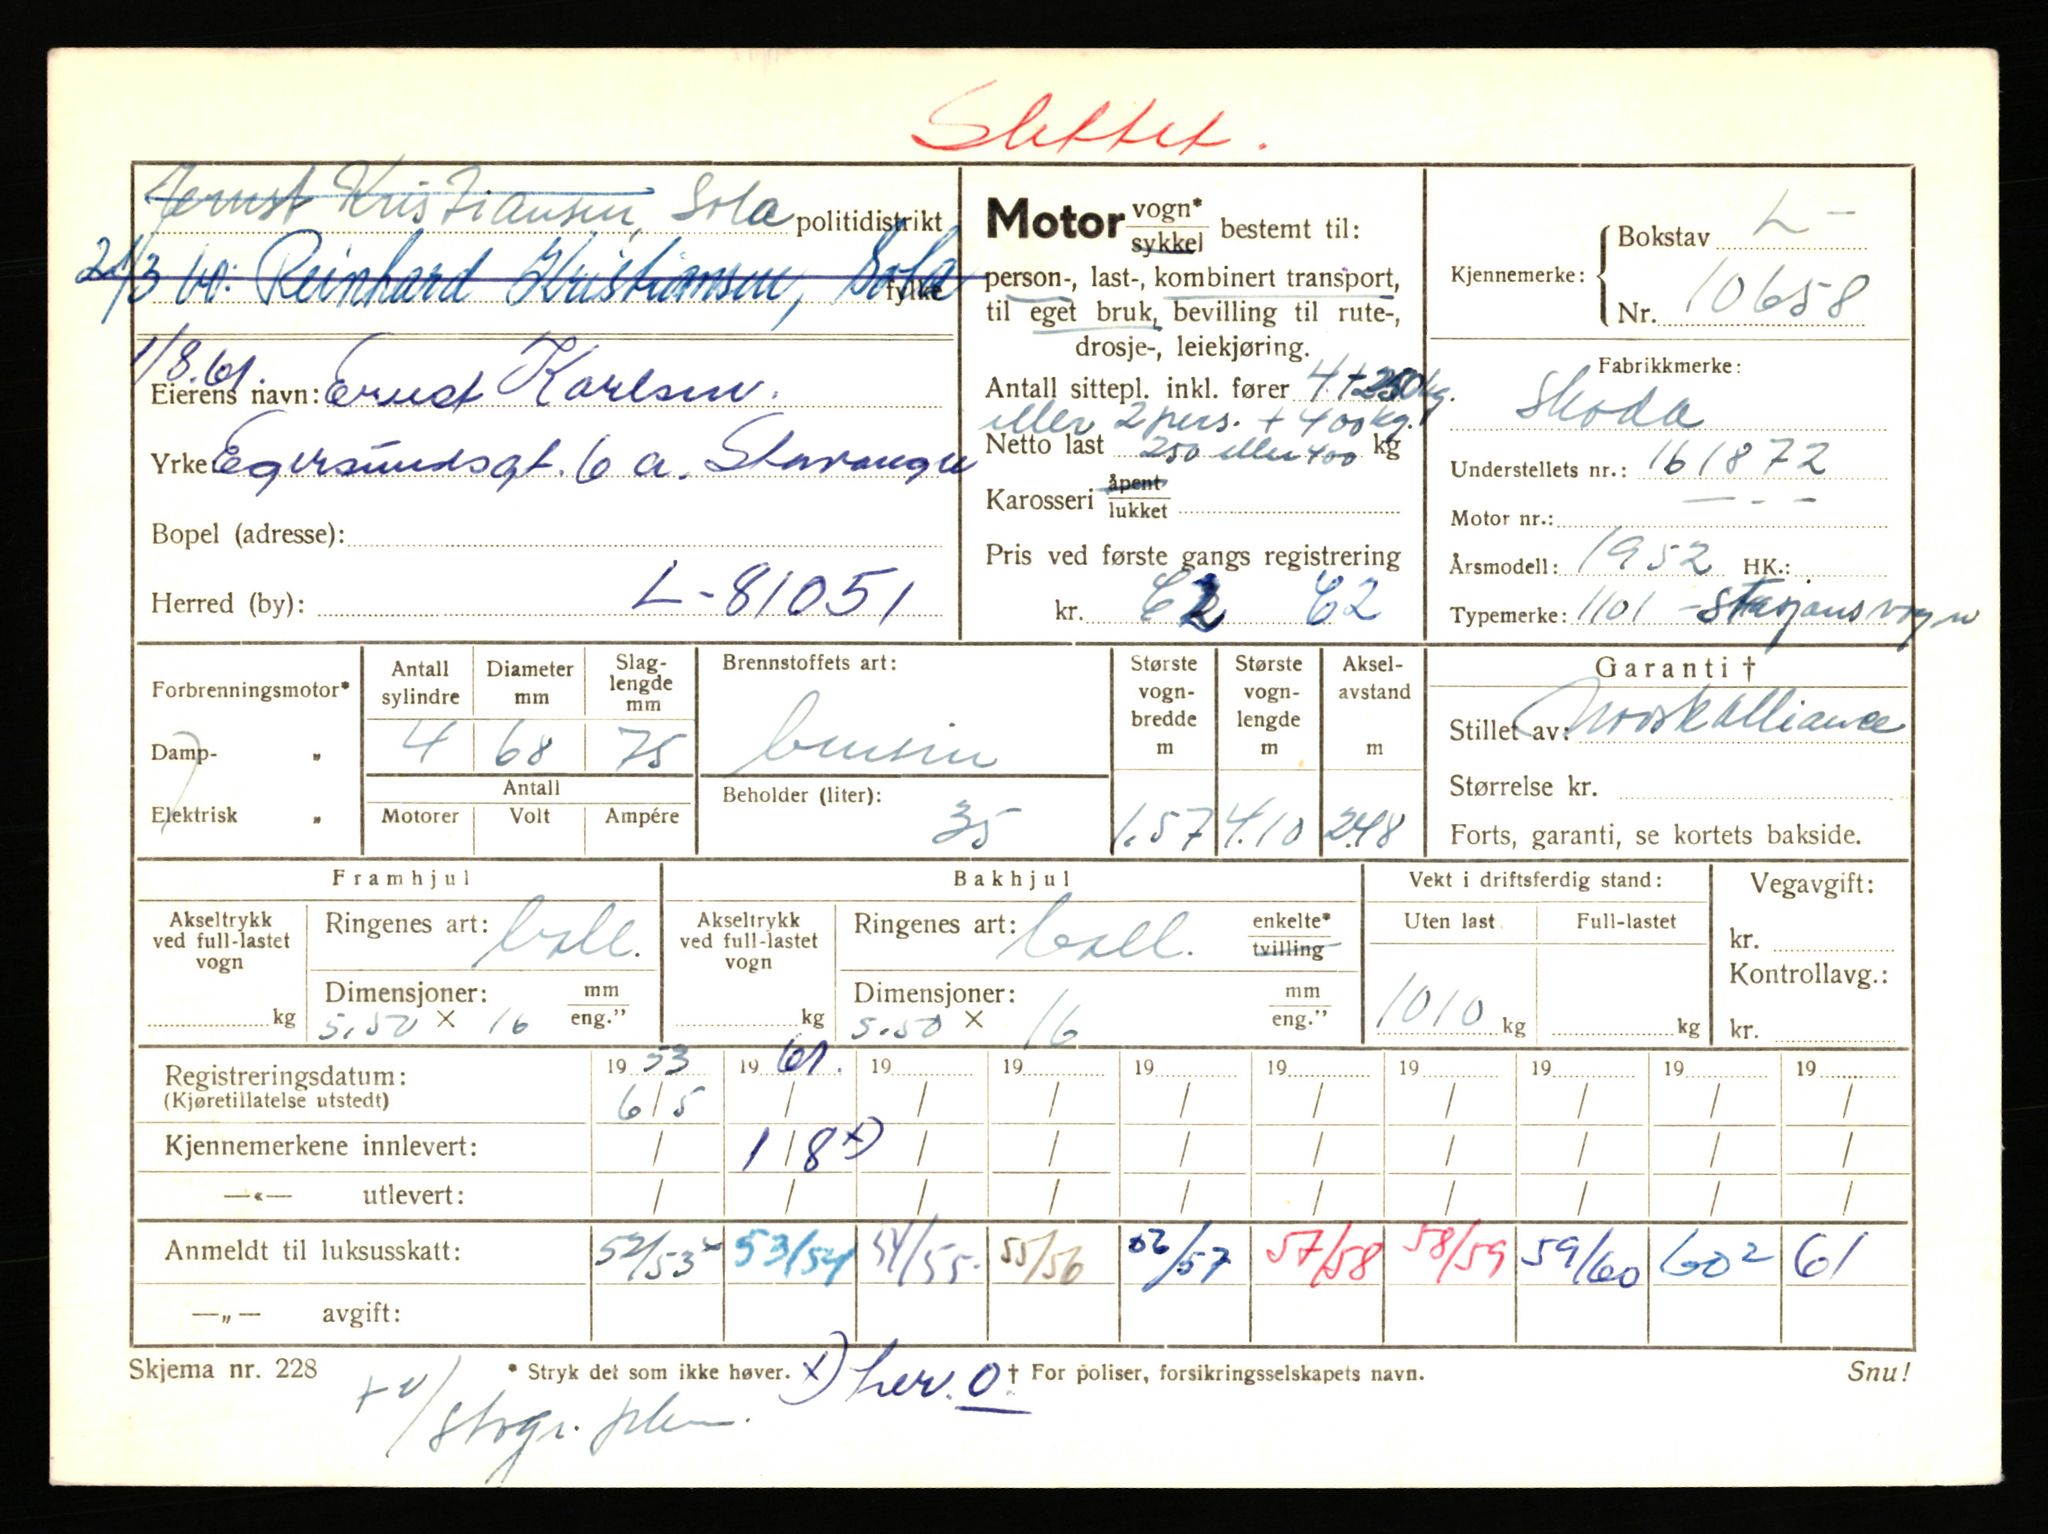 Slettet.
Jernst Kristiansen, Sola politidistrikt
21/3 60: Reinhard Kristiansen, Sola fylke
1/8.61.
Eierens navn: Ernst Karlsen.
Yrke Egersundsgt. 6 a. Stavanger
Bopel (adresse):
Herred (by): L-81051
Motor vogn* sykkel bestemt til:
person-, last-, kombinert transport,
til eget bruk, bevilling til rute-,
drosje-, leiekjøring.
Antall sittepl. inkl. fører 4 + 250 kg.
eller 2 pers. + 400 kg.
Netto last 250 eller 400 kg
Karosseri åpent lukket
Pris ved første gangs registrering
kr. C2 C2
Kjennemerke: Bokstav L-
Nr. 10658
Fabrikkmerke:
Skoda
Understellets nr.: 161872
Motor nr.: - - -
Årsmodell: 1952 HK.:
Typemerke: 1101 - Stasjonsvogn
Forbrenningsmotor*
Damp- „
Elektrisk „
Antall sylindre 4
Diameter mm 68
Slaglengde mm 75
Antall
Motorer Volt Ampére
Brennstoffets art:
bensin
Beholder (liter): 35
Største vognbredde m 1.57
Største vognlengde m 4.10
Akselavstand m 2.48
Garanti †
Stillet av: Norsk Alliance
Størrelse kr.
Forts, garanti, se kortets bakside.
Framhjul
Akseltrykk ved full-lastet vogn kg
Ringenes art: ball.
Dimensjoner: mm eng.”
5.50 x 16
Bakhjul
Akseltrykk ved full-lastet vogn kg
Ringenes art: ball. enkelte* tvilling
Dimensjoner: mm eng.”
5.50 x 16
Vekt i driftsferdig stand:
Uten last 1010 kg
Full-lastet kg
Vegavgift:
kr.
Kontrollavg.:
kr.
Registreringsdatum: 19 53 19 61. 19 19 19 19 19 19 19 19
(Kjøretillatelse utstedt) 6/5 / / / / / / / / /
Kjennemerkene innlevert: / 1/8 x) / / / / / / / /
—«— utlevert: / / / / / / / / / /
Anmeldt til luksusskatt: 52/53 53/54 54/55. 55/56 56/57 57/58 58/59 59/60 60 2 61
—„— avgift:
Skjema nr. 228 * Stryk det som ikke høver. x) her. 0. † For poliser, forsikringsselskapets navn. Snu!